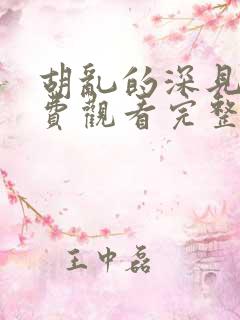 胡亂的深見
費觀看完整
王中磊